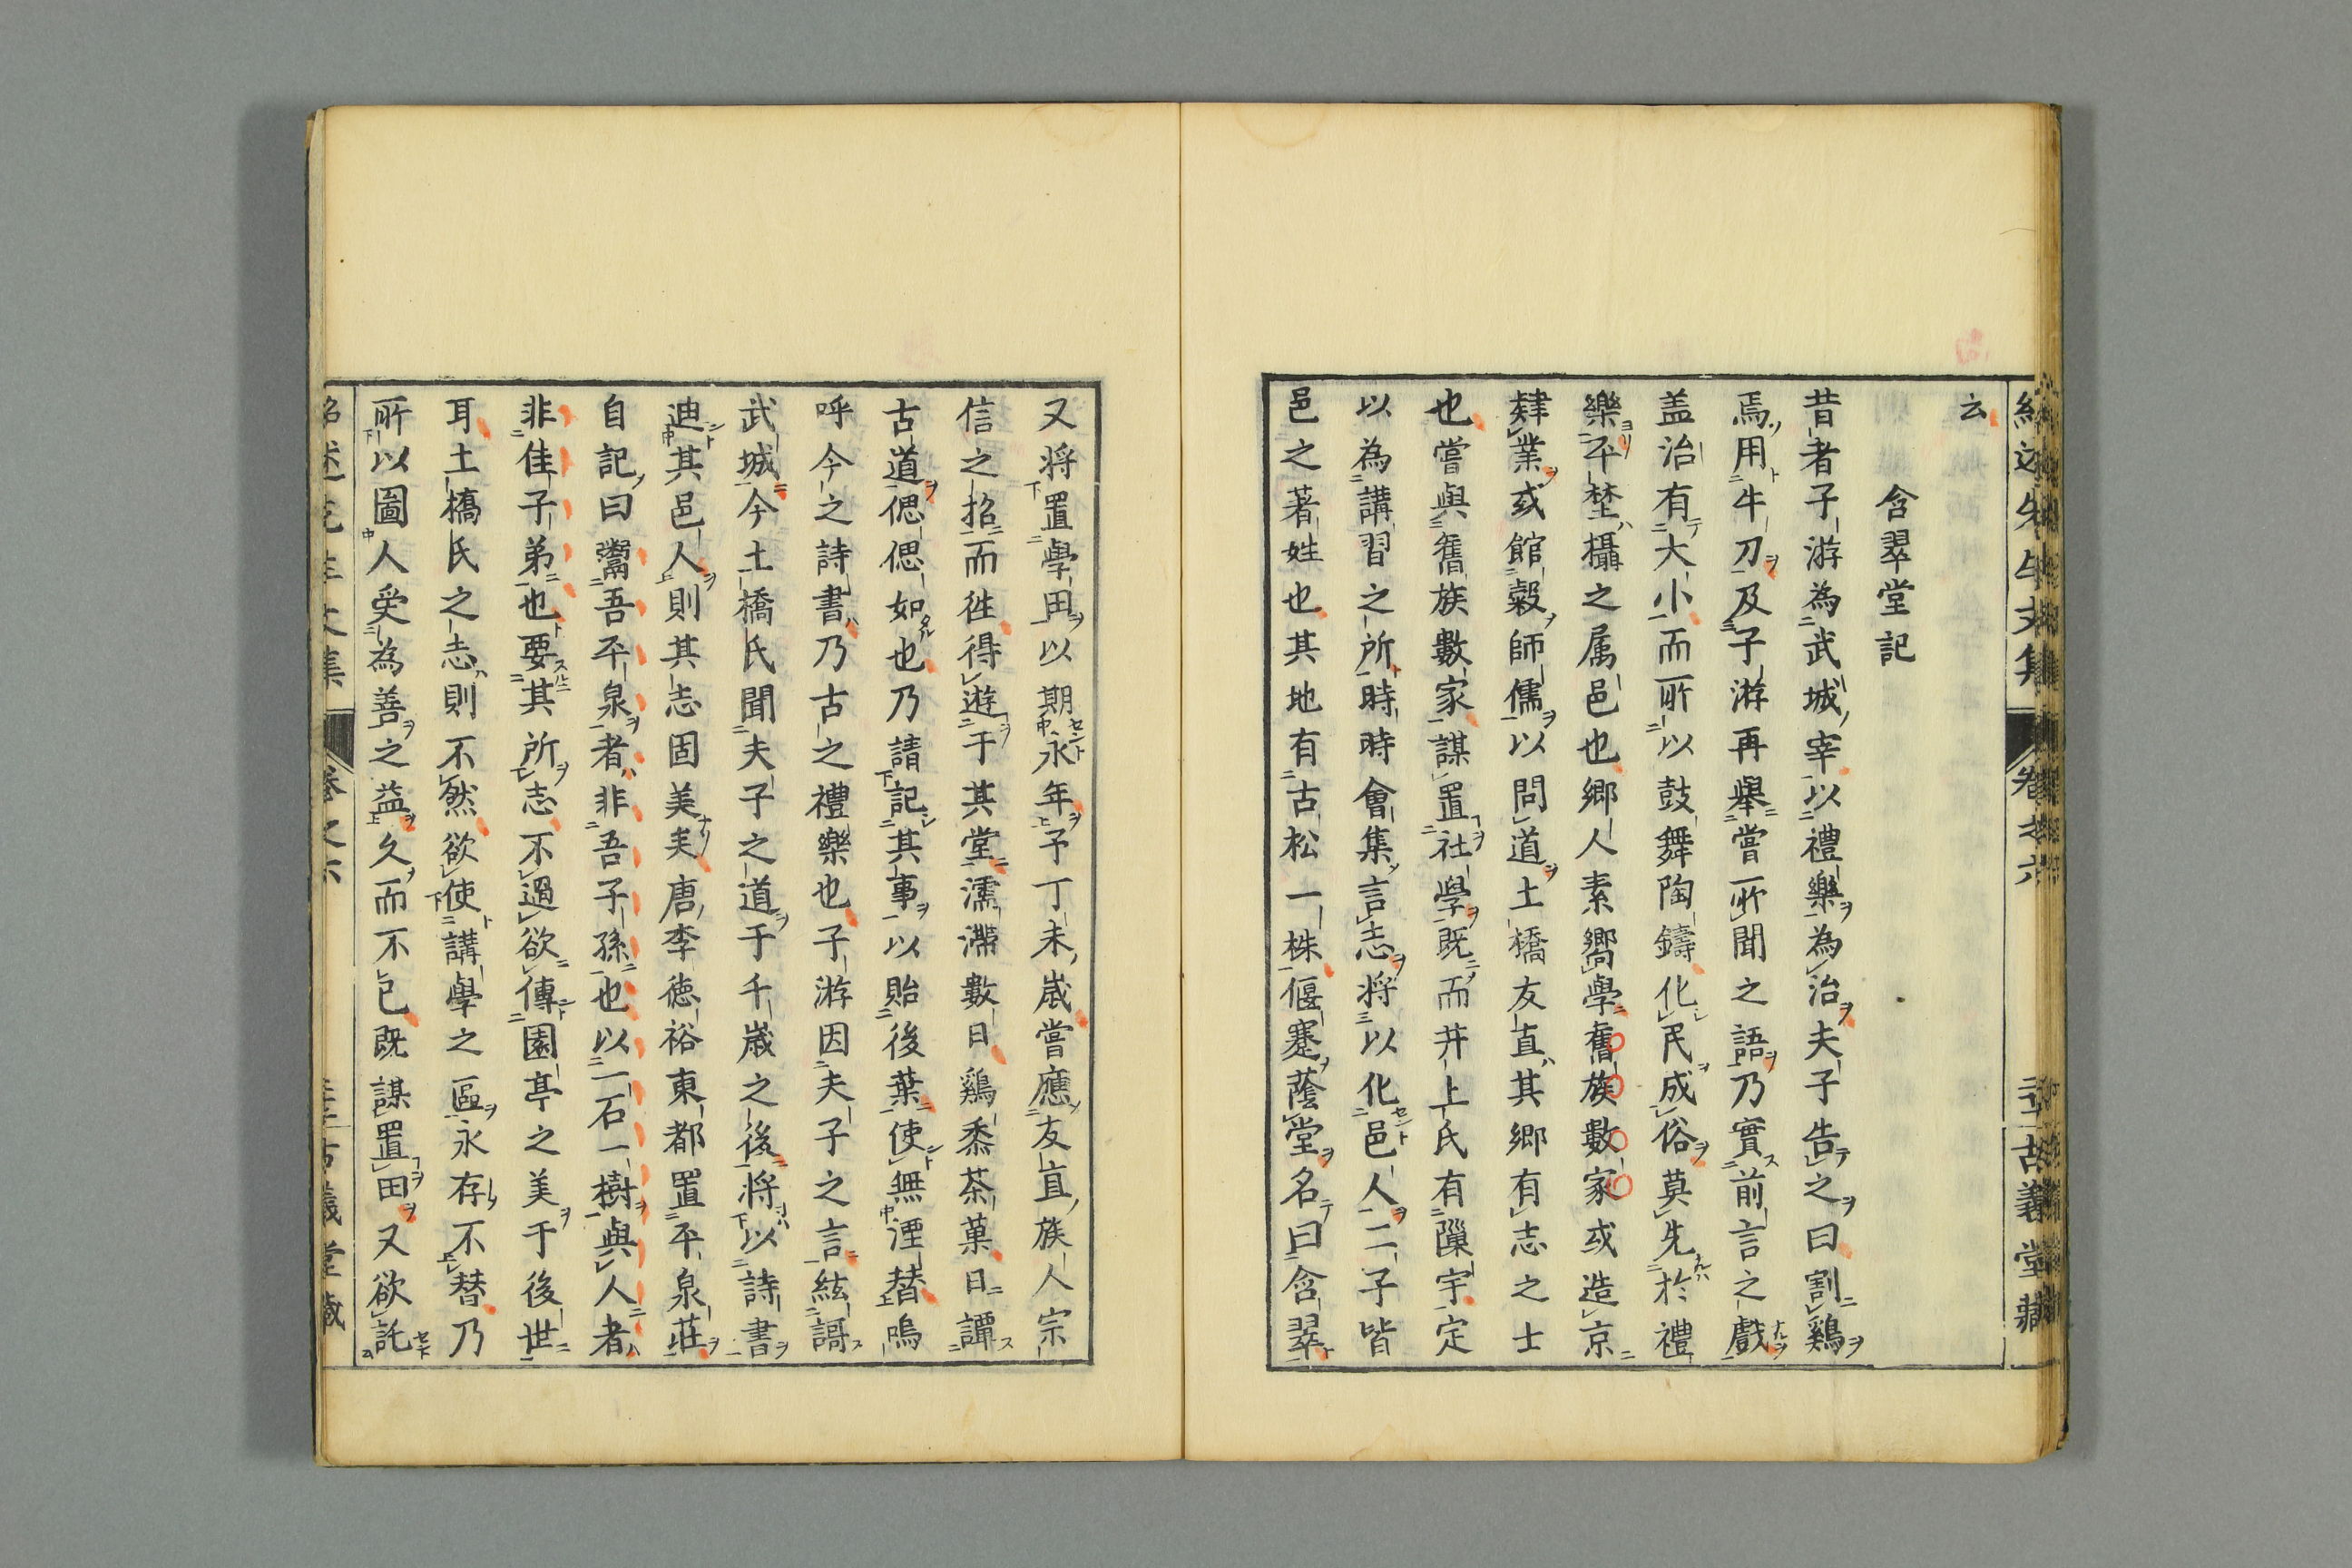 云
含翠堂記
昔者子游為武城宰以禮樂為治夫子告之曰割鷄
焉用牛刀及子游再舉嘗所聞之語乃實前言之戲
盖治有大小而所以鼓舞陶鑄化民成俗莫先於禮
樂平埜攝之属邑也鄉人素嚮學舊族數家或造京
肄業或館穀師儒以問道土橋友直其鄉有志之士
也嘗與舊族數家謀置社學既而井上氏有隟宇定
以為講習之所時時會集言志将以化邑人二子皆
邑之著姓也其地有古松一株偃蹇蔭堂名曰含翠
又将置學田以期永年予丁未歲嘗應友直族人宗
信之招而徃得遊于其堂濡滯數日鷄黍茶菓日譚
古道偲偲如也乃請記其事以貽後葉使無湮替嗚
呼今之詩書乃古之禮樂也子游因夫子之言絃謌
武城今土橋氏聞夫子之道于千歲之後将以詩書
迪其邑人則其志固美矣唐李徳裕東都置平泉莊
自記曰鬻吾平泉者非吾子孫也以一石一樹與人者
非佳子弟也要其所志不過欲傳園亭之美于後世
耳土橋氏之志則不然欲使講學之區永存不替乃
所以圖人受為善之益久而不已既謀置田又欲託
卷之六
古義堂藏